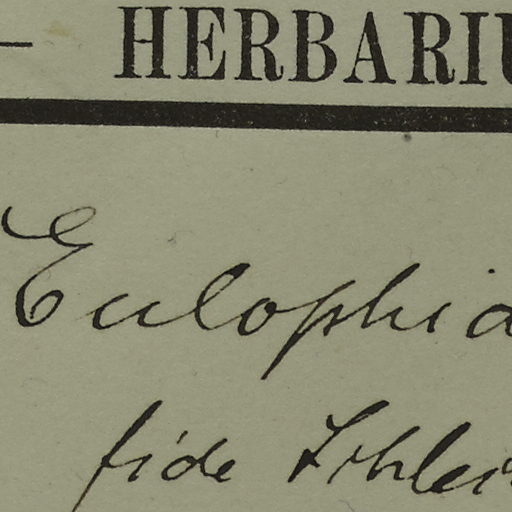 — HERBARIU
Eulophia
fide Schlei